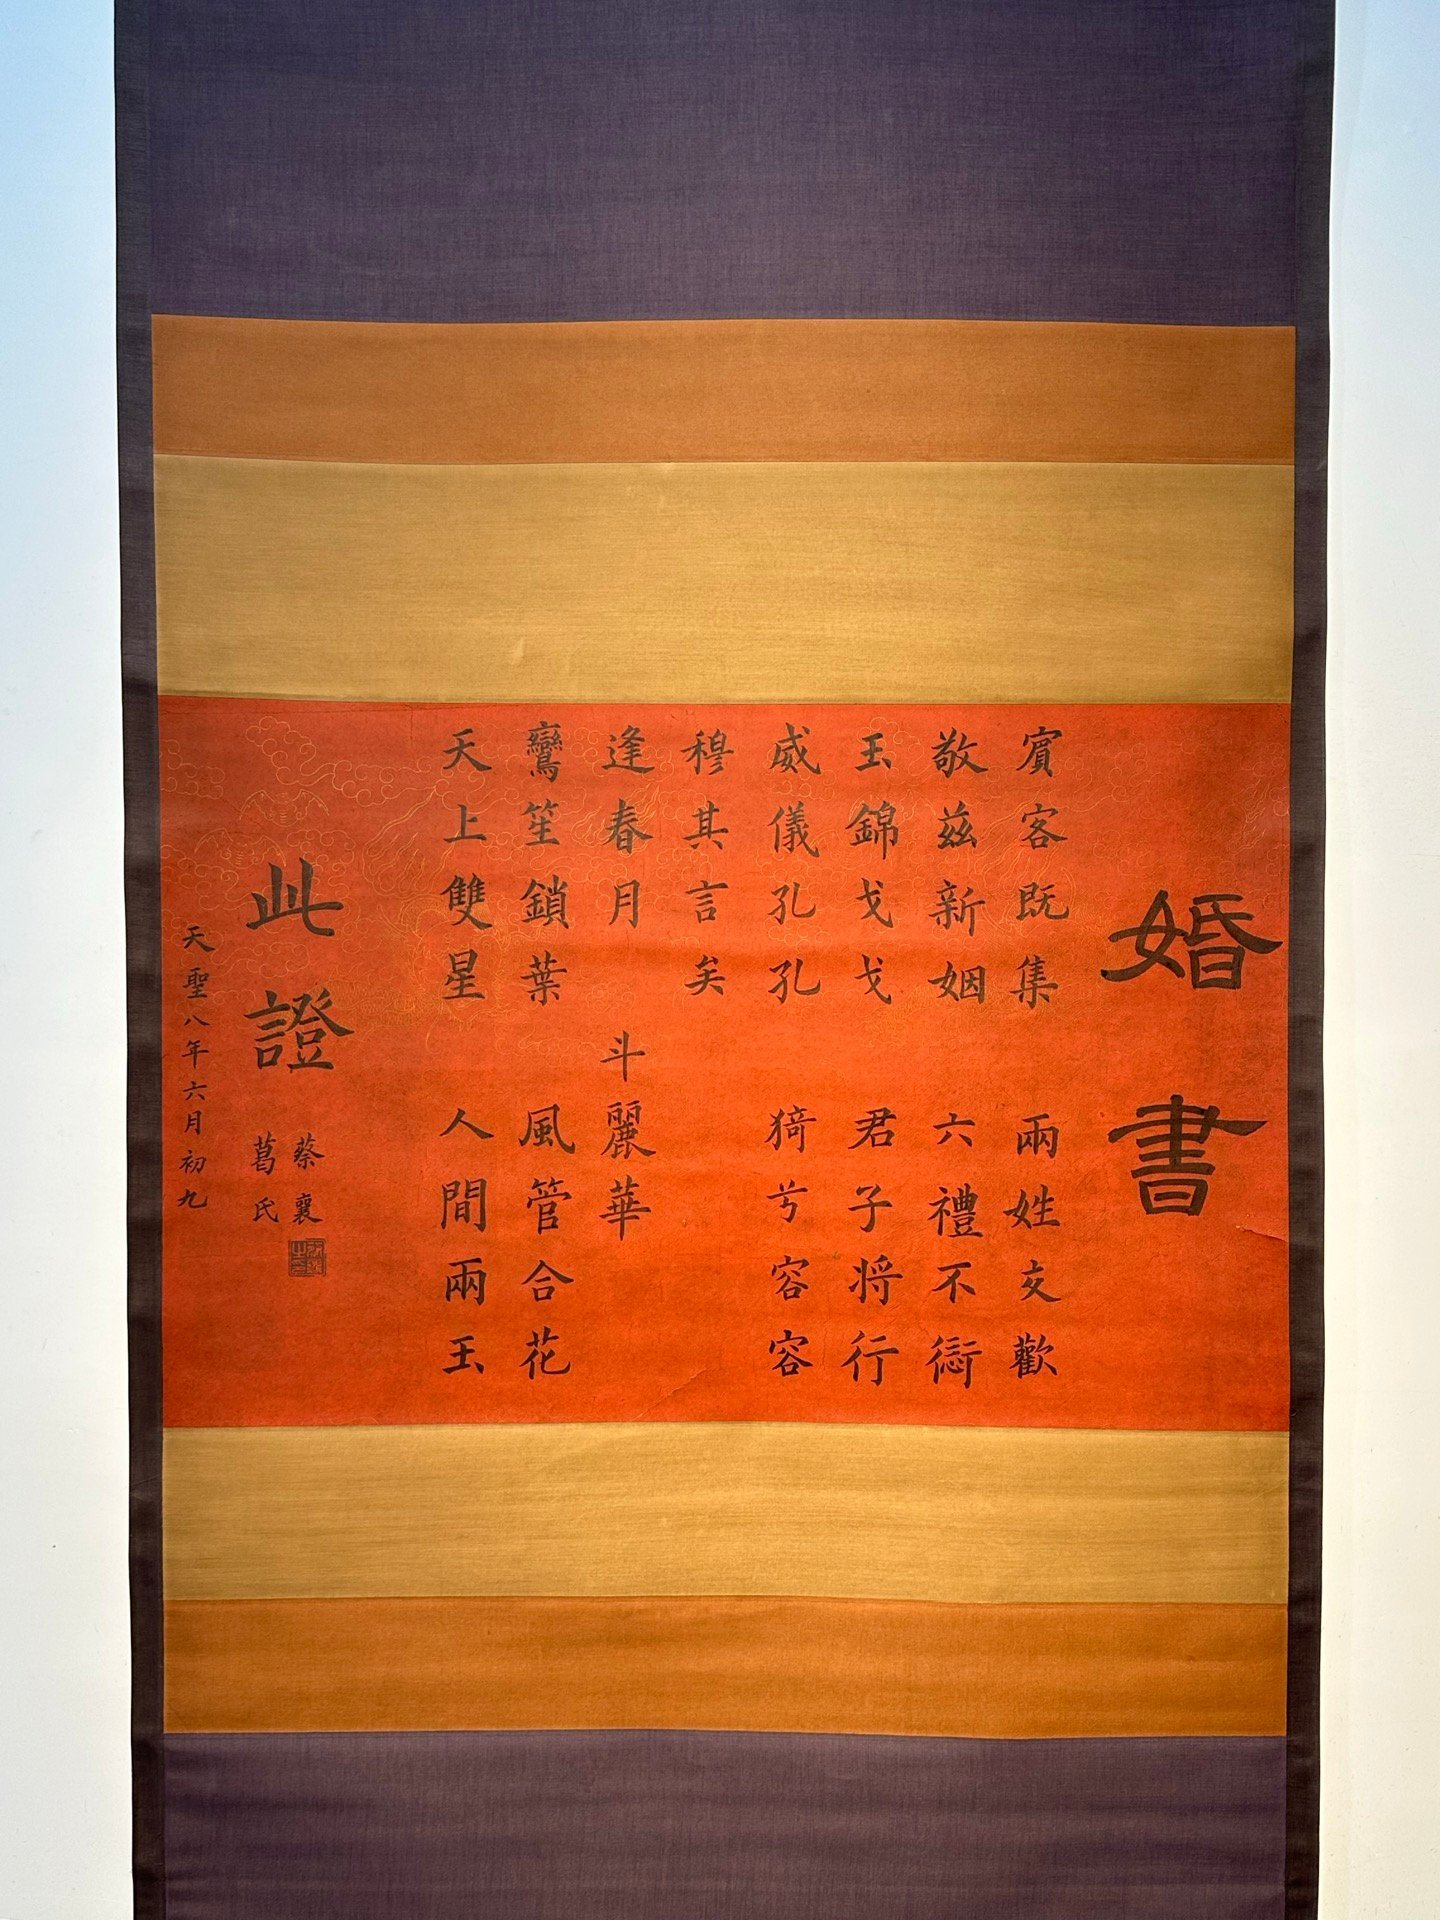 婚書
賓客既集 兩姓交歡
敬茲新姻 六禮不愆
玉錦戔戔 君子將行
威儀孔孔 猗兮容容
穆其言矣
逢春月 斗麗華
鸞笙鎖葉 風管合花
天上雙星 人間兩玉
此證
蔡襄
葛氏
天聖八年六月初九